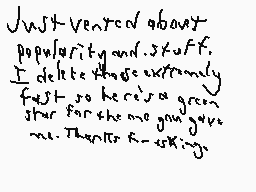 Just vented about
popularity and. stuff.
I delete those extremely
fast so here's a green
star for the one you gave
me. Thanks for asking.